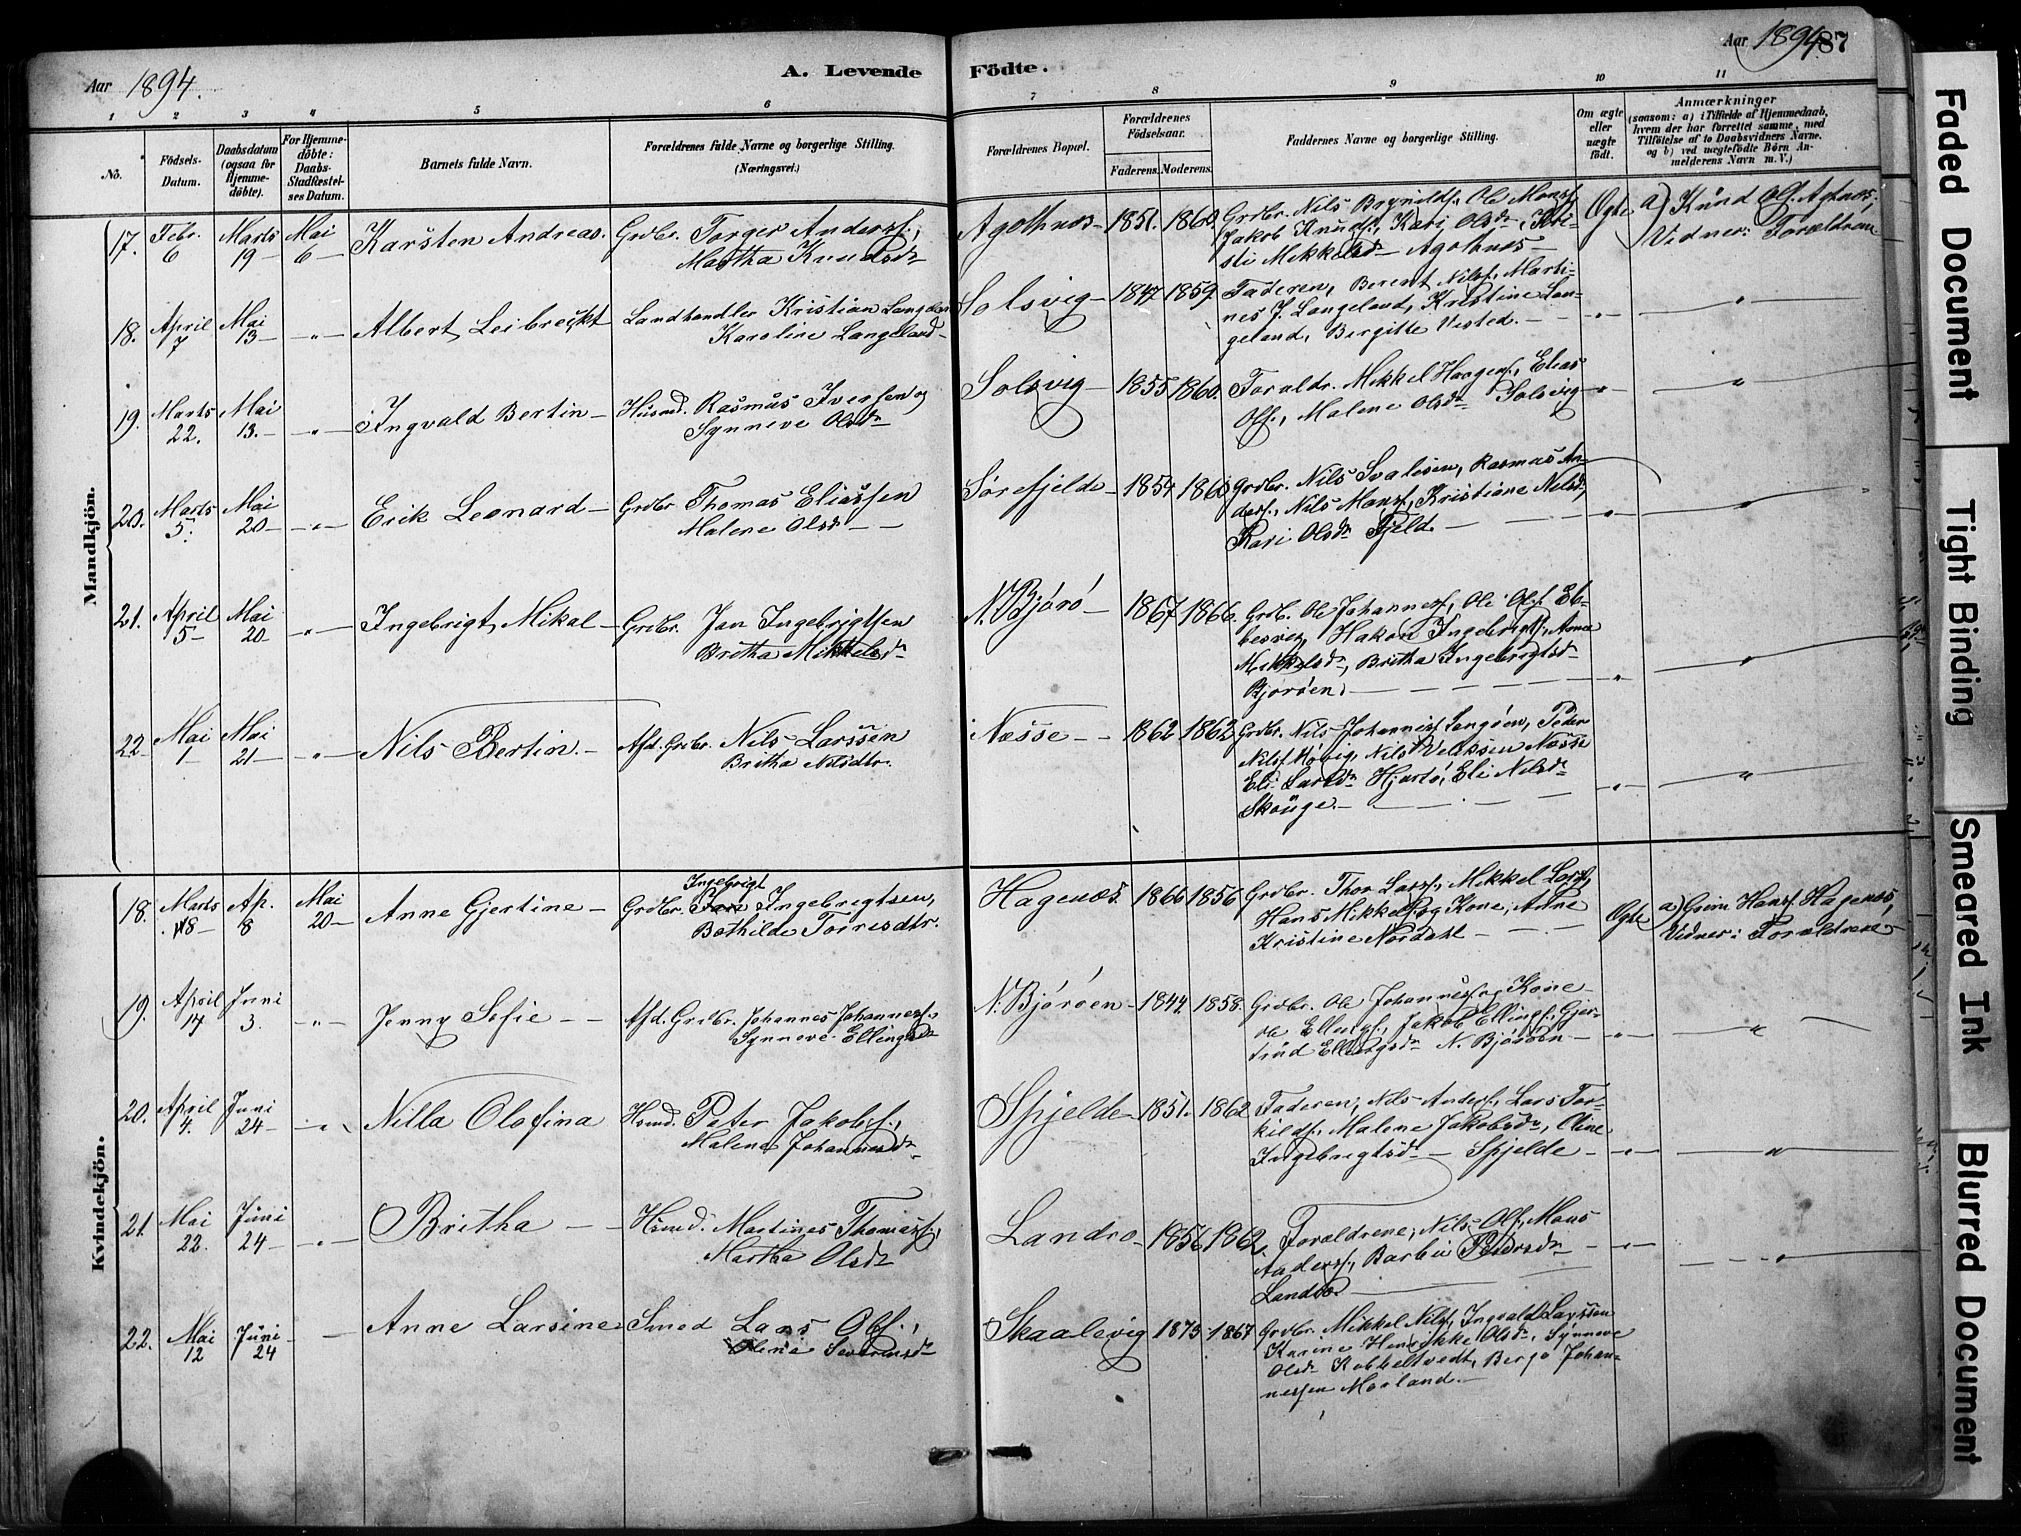 Aar 1894.
A. Levende Födte.
Aar 1894. 87
1 2 3 4 5 6 7 8 9 10 11
No.
Födsels-
Datum.
Daabsdatum
(ogsaa for
Hjemme-
döbte).
For Hjemme-
döbte:
Daabs-
Stadfæstel-
ses Datum.
Barnets fulde Navn.
Forældrenes fulde Navne og borgerlige Stilling.
(Næringsvei.)
Forældrenes Bopæl.
Forældrenes
Födselsaar.
Faderens. Moderens.
Faddernes Navne og borgerlige Stilling.
Om ægte
eller
uægte
født.
Anmærkninger
(saasom: a) i Tilfælde af Hjemmedaab,
hvem der har forrettet samme, med
Tilföielse af to Daabsvidners Navne.
og b) ved uægtefödte Börn An-
melderens Navn m. V.)
Mandkjön.
17. Febr. 6 Marts 19 Mai 6 Karsten Andreas. Grdbr. Torger Anders.,
Martha Knudsdr
Agothnes 1851. 1860. Grdbr. Nils Brynilds., Ole Mons.,
Jakob Knuds., Kari Olsdr, Kri-
sti Mikkelsdr Agothnes
Ægte a) Knud Ols. Agtnes.
Vidner: Forældrene
18. April 7 Mai 13 " Albert Leibreckt Landhandler Kristian Langeland
Karoline Langeland
Solsvig 1847 1859. Faderen, Berent Nils., Marti-
nes J. Langeland, Kristine Lan-
geland, Birgitte Visted.
" "
19. Marts 22. Mai 13. " Ingvald Bertin Husmd. Rasmus Iversen og
Synneve Olsdr
Solsvig 1855 1860. Foraldr. Mikkel Haagens., Elias
Ols., Malene Olsdr Solsvig
" "
20. Marts 5. Mai 20 " Erik Leonard Grdbr Thomas Eliassen
Malene Olsdr
Sørefjelde 1859 1860 Grdbr. Nils Svalesen, Rasmus An-
ders., Nils Mons., Kristiane Nilsd,
Kari Olsdr Fjeld.
" "
21. April 5 Mai 20 " Ingebrigt Mikal Grdbr. Jan Ingebrigtsen
Britha Mikkelsdr
N. Bjørø 1867 1866. Grdb. Ole Johannes., Ole Ols. Eb-
besvig, Hakon Ingebrigts., Anna
Mikkelsdr, Britha Ingebrigtsdr
Bjørøen.
" "
22 Mai 1 Mai 21 " Nils Bertin. Afd. Grdbr. Nils Larssen
Britha Nilsdtr.
Næsse 1862 1862 Grdbr. Nils Johannes. Langøen, Peder
Nils. Møvig, Nils Næsse
Eli Larsdr Hjartø, Eli Nilsdr
Skouge.
" "
Kvindekjön.
18. Marts 18 Ap. 8 Mai 20 Anne Gjertine Ingebrigt
Grdbr. Ingebregtsen,
Bothilde Torresdtr.
Hagenæs. 1866 1856 Grdbr. Thor Lars., Mikkel Lars.,
Hans Mikkels. og Kone, Anne
Kristine Nordahl
Ægte a) Grim Hans. Hagenæs,
Vidner: Forældrene
19. April 17 Juni 3. " Jenny Sofie Afd. Grdbr. Johannes Johannes.,
Synneve Ellingsdr
N. Bjørøen 1844. 1858. Grdbr. Ole Johannes. og Kone
Ole Ellings., Jakob Ellings., Gjer-
trud Ellingsdr N. Bjørøen
" "
20. April 4. Juni 24 " Nilla Olofina Husmd. Peter Jakobs.,
Malena Johannesdr
Spjelde 1851. 1862 Faderen, Nils Anders., Lars Tor-
kilds., Malene Jakobsdr, Oline
Ingebrigtsdr Spjelde
" "
21. Mai 22. Juni 24 " Britha Husmd. Martines Thomass.,
Martha Olsdr
Landro 1856 1862. Forældrene, Nils Ols., Mons
Anders., Barbu Pedersdr
Landro.
" "
22. Mai 12 Juni 24 Anne Larsine Smed Lars Ols.,
Oline Severinsdr
Skaalevig 1875 1867 Grdbr. Mikkel Nils., Ingvald Larssen
Karine Henrikke Olsdr, Synneve
Olsdr Kobbeltvedt, Berje Johan-
nessen Morland.
Faded Document
Tight Binding
Smeared Ink
Blurred Document